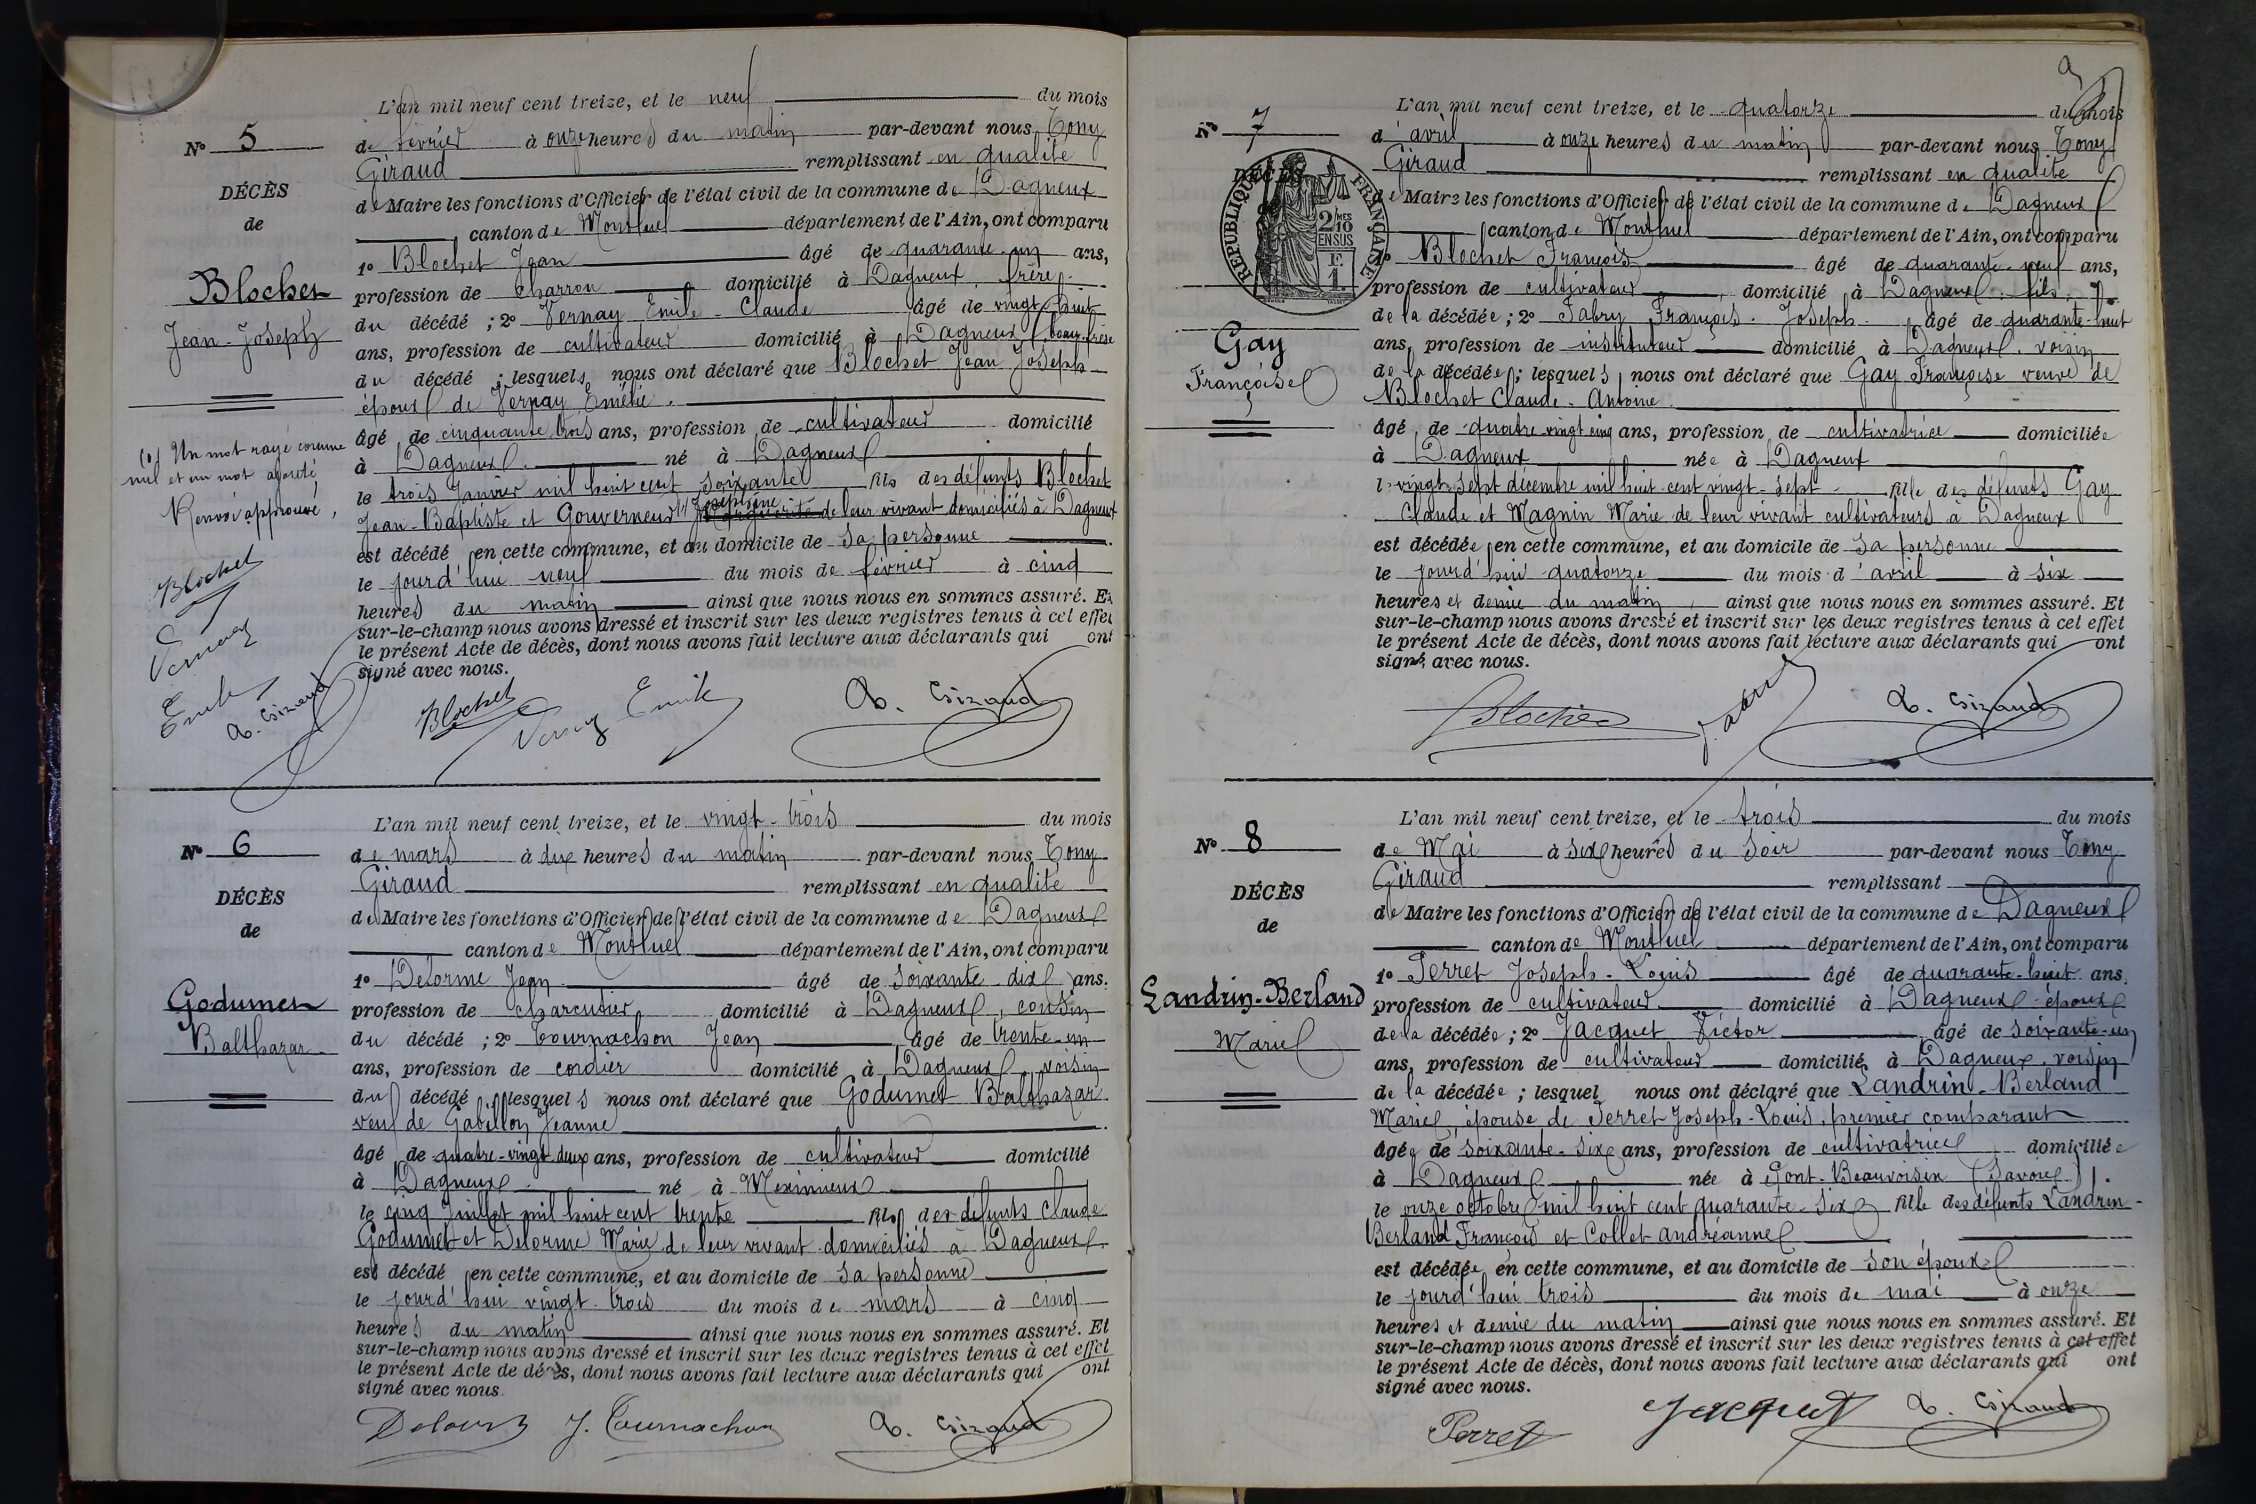 L'an mil neuf cent treize, et le neuf du mois
N° 5
de février à onze heures du matin par-devant nous Tony
Giraud remplissant en qualité
DÉCÈS
de Maire les fonctions d'Officier de l'état civil de la commune de Dagneux
de
canton de Montluel département de l'Ain, ont comparu
1° Blochet Jean âgé de quarante-un ans,
Blochet
profession de charron domicilié à Dagneux, frère
Jean-Joseph
du décédé ; 2° Vernay Emile-Claude âgé de vingt-huit
ans, profession de cultivateur domicilié à Dagneux, beau-frère
du décédé ; lesquels nous ont déclaré que Blochet Jean Joseph
époux de Vernay Emélie.
âgé de cinquante trois ans, profession de cultivateur domicilié
à Dagneux né à Dagneux
le trois Janvier mil huit cent soixante fils des défunts Blochet
Jean-Baptiste et Gouverneur (1) Joséphine Marguerite de leur vivant domiciliés à Dagneux
est décédé en cette commune, et au domicile de sa personne
le jourd'hui neuf du mois de février à cinq
heures du matin ainsi que nous nous en sommes assuré. Et
sur-le-champ nous avons dressé et inscrit sur les deux registres tenus à cet effet
le présent Acte de décès, dont nous avons fait lecture aux déclarants qui ont
signé avec nous.
(1) Un mot rayé comme
nul et un mot ajouté
Renvoi approuvé,
Blochet
Vernay
Emile
T. Giraud
Blochet Vernay Emile T. Giraud
L'an mil neuf cent treize, et le vingt-trois du mois
N° 6
de mars à dix heures du matin par-devant nous Tony
Giraud remplissant en qualité
DÉCÈS
de Maire les fonctions d'Officier de l'état civil de la commune de Dagneux
de
canton de Montluel département de l'Ain, ont comparu
1° Delorme Jean âgé de soixante-dix ans.
Godumet
profession de charcutier domicilié à Dagneux, cousin
Balthazar
du décédé ; 2° Tournachon Jean âgé de trente-un
ans, profession de cordier domicilié à Dagneux, voisin
du décédé lesquels nous ont déclaré que Godumet Balthazar
veuf de Gabillon Jeanne
âgé de quatre-vingt-deux ans, profession de cultivateur domicilié
à Dagneux né à Meximieux
le cinq Juillet mil huit cent trente fils des défunts Claude
Godumet et Delorme Marie de leur vivant domiciliés à Dagneux
est décédé en cette commune, et au domicile de sa personne
le jourd'hui vingt-trois du mois de mars à cinq
heures du matin ainsi que nous nous en sommes assuré. Et
sur-le-champ nous avons dressé et inscrit sur les deux registres tenus à cet effet
le présent Acte de décès, dont nous avons fait lecture aux déclarants qui ont
signé avec nous.
Delorme J. Tournachon T. Giraud
9
L'an mil neuf cent treize, et le quatorze du mois
N° 7
d'avril à onze heures du matin par-devant nous Tony
Giraud remplissant en qualité
DÉCÈS
RÉPUBLIQUE FRANÇAISE
2/10 MES EN SUS
1 F
de Maire les fonctions d'Officier de l'état civil de la commune de Dagneux
canton de Montluel département de l'Ain, ont comparu
1° Blochet François âgé de quarante-neuf ans,
profession de cultivateur domicilié à Dagneux, fils
de la décédée ; 2° Fabry François-Joseph âgé de quarante-huit
Gay
ans, profession de instituteur domicilié à Dagneux, voisin
Françoise
de la décédée ; lesquels nous ont déclaré que Gay Françoise veuve de
Blochet Claude-Antoine
âgé de quatre-vingt cinq ans, profession de cultivatrice domiciliée
à Dagneux née à Dagneux
le vingt-sept décembre mil huit-cent vingt-sept fille des défunts Gay
Claude et Magnin Marie de leur vivant cultivateurs à Dagneux
est décédée en cette commune, et au domicile de sa personne
le jourd'hui quatorze du mois d'avril à six
heures et demie du matin, ainsi que nous nous en sommes assuré. Et
sur-le-champ nous avons dressé et inscrit sur les deux registres tenus à cet effet
le présent Acte de décès, dont nous avons fait lecture aux déclarants qui ont
signé avec nous.
Blochet J. Fabry T. Giraud
L'an mil neuf cent treize, et le trois du mois
N° 8
de Mai à six heures du soir par-devant nous Tony
Giraud remplissant
DÉCÈS
de Maire les fonctions d'Officier de l'état civil de la commune de Dagneux
de
canton de Montluel département de l'Ain, ont comparu
1° Perret Joseph-Louis âgé de quarante-huit ans.
Landrin-Berland
profession de cultivateur domicilié à Dagneux époux
Marie
de la décédée ; 2° Jacquet Victor âgé de soixante-un
ans, profession de cultivateur domicilié à Dagneux, voisin
de la décédée ; lesquel nous ont déclaré que Landrin-Berland
Marie, épouse de Perret Joseph-Louis, premier comparant
âgée de soixante-six ans, profession de cultivatrice domiciliée
à Dagneux née à Pont-Beauvoisin (Savoie)
le onze octobre mil huit cent quarante-six fille des défunts Landrin-
Berland François et Collet Andréanne
est décédée en cette commune, et au domicile de son époux
le jourd'hui trois du mois de mai à onze
heures et demie du matin ainsi que nous nous en sommes assuré. Et
sur-le-champ nous avons dressé et inscrit sur les deux registres tenus à cet effet
le présent Acte de décès, dont nous avons fait lecture aux déclarants qui ont
signé avec nous.
Perret Jacquet T. Giraud